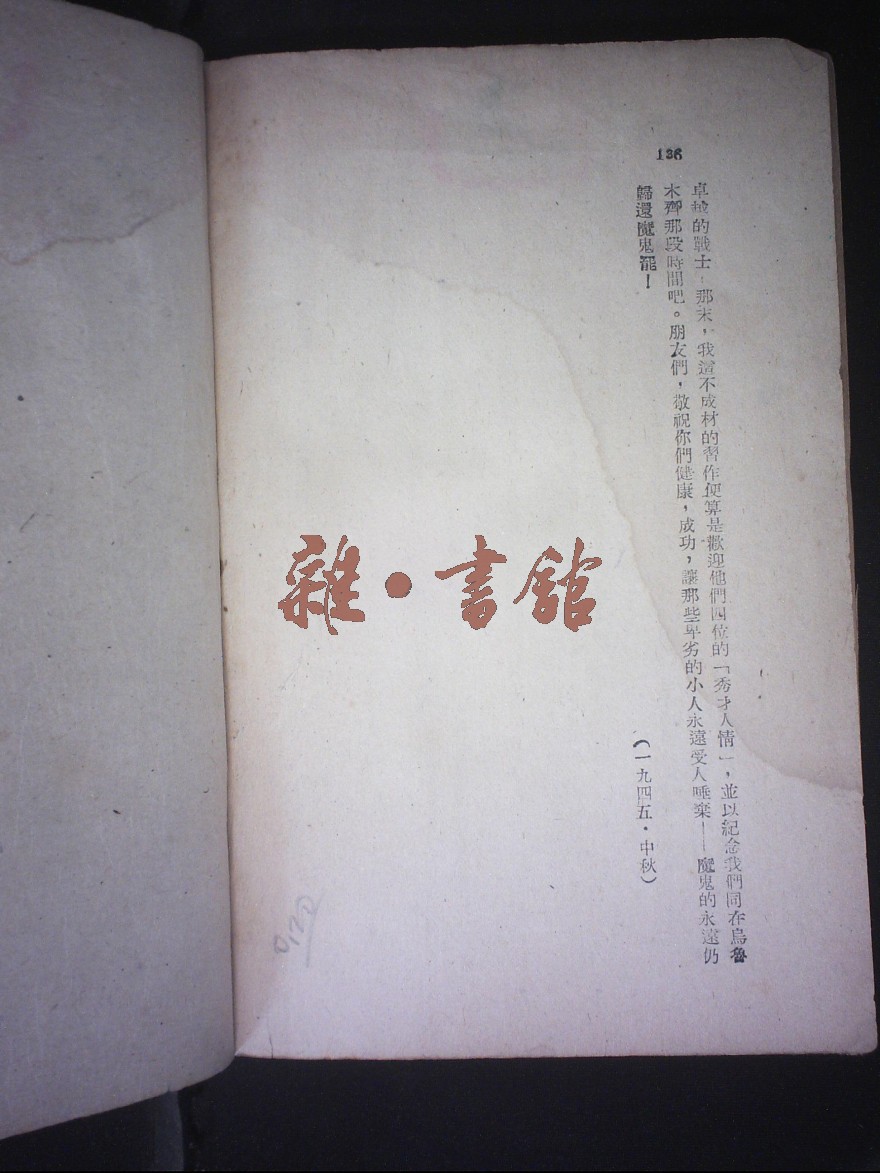 136
卓越的戰士，那末，我這不成材的習作便算是歡迎他們四位的「秀才人情」，並以紀念我們同在烏魯
木齊那段時間吧。朋友們，敬祝你們健康，成功，讓那些卑劣的小人永遠受人唾棄——魔鬼的永遠仍
歸還魔鬼罷！
（一九四五·中秋）
雜·書館